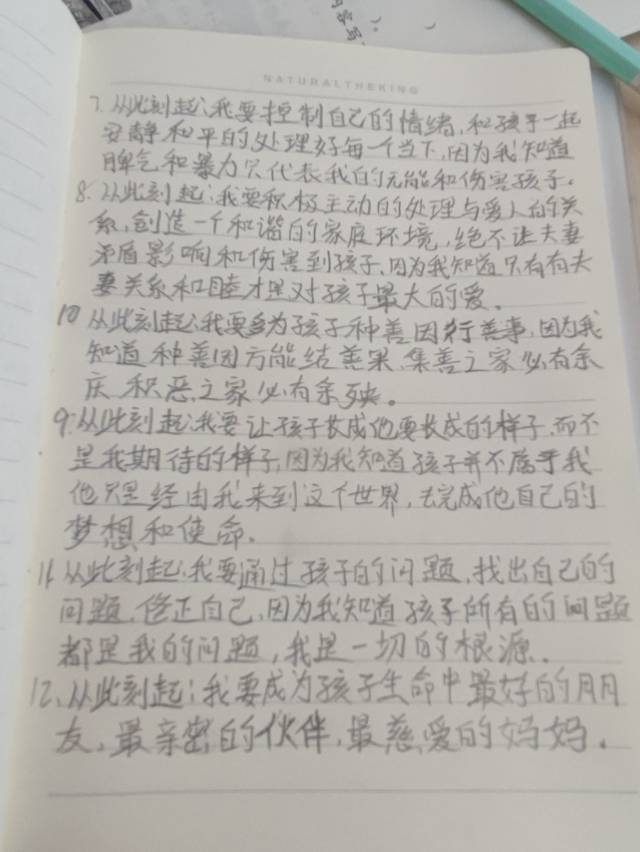 内容写
NATURALTHEKING
7.从此刻起:我要控制自己的情绪,和孩子一起
安静和平的处理好每一个当下,因为我知道
脾气和暴力只代表我的无能和伤害孩子。
8.从此刻起:我要积极主动的处理与爱人的关
系,创造一个和谐的家庭环境,绝不让夫妻
矛盾影响和伤害到孩子,因为我知道只有有夫
妻关系和睦才是对孩子最大的爱.
10从此刻起:我要多为孩子种善因行善事,因为我
知道种善因方能结善果,集善之家必有余
庆,积恶之家必有余殃。
9.从此刻起:我要让孩子长成他要长成的样子,而不
是我期待的样子,因为我知道孩子并不属于我
他只是经由我来到这个世界,去完成他自己的
梦想和使命.
11从此刻起:我要通过孩子的问题,找出自己的
问题,修正自己,因为我知道孩子所有的问题
都是我的问题,我是一切的根源.
12、从此刻起:我要成为孩子生命中最好的朋
友,最亲密的伙伴,最慈爱的妈妈.